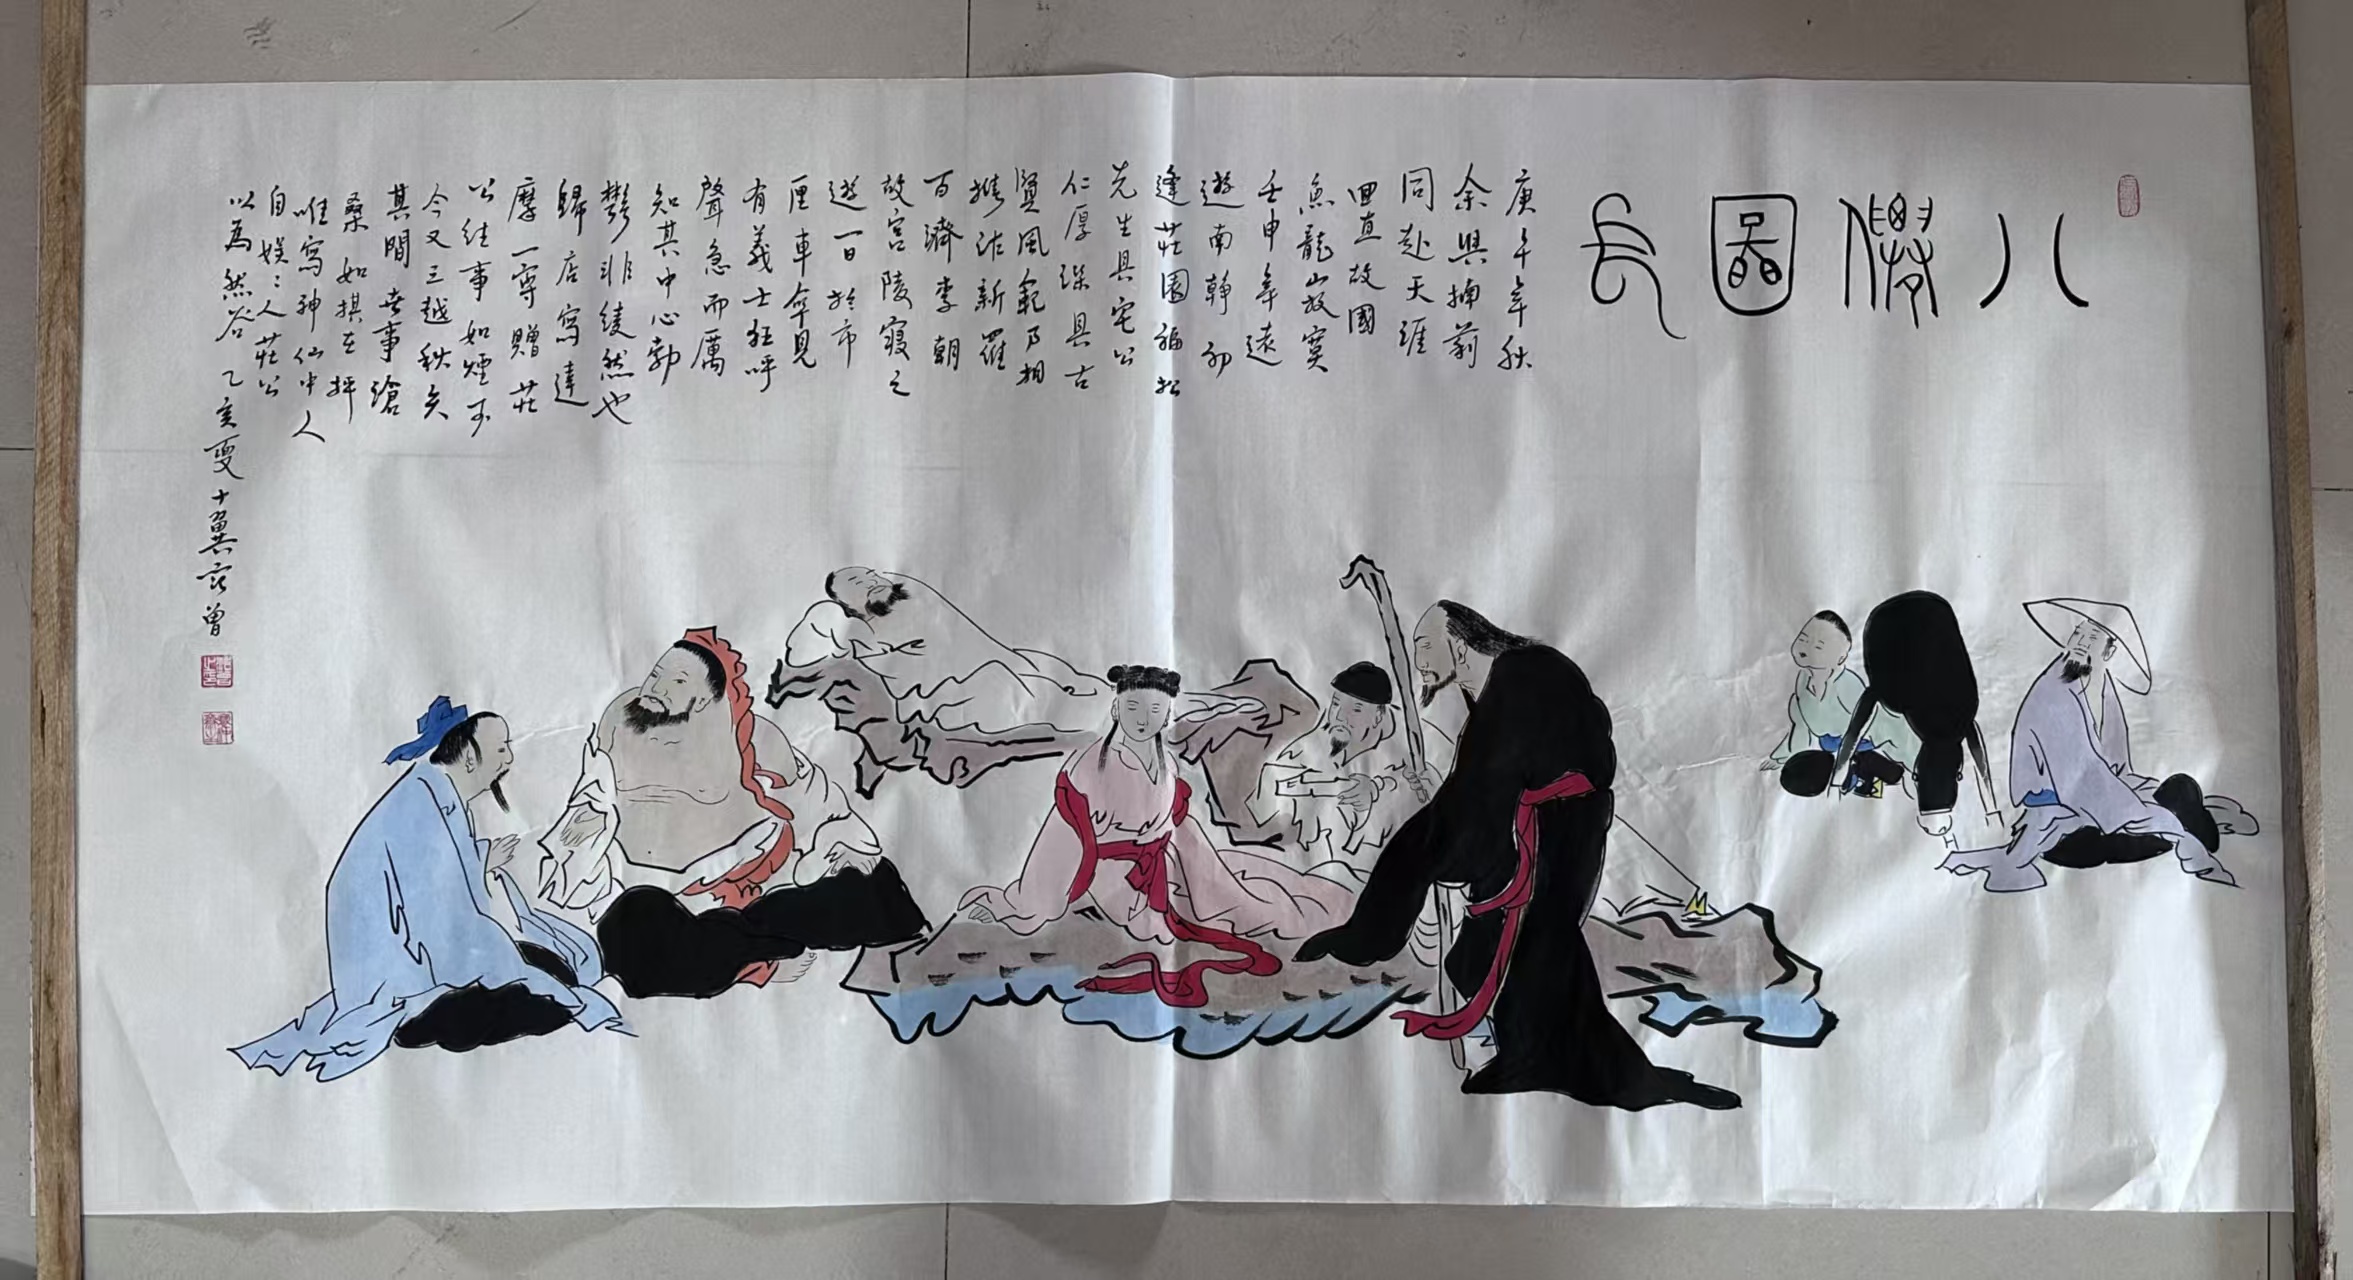 八僊圖長
庚午年秋
余與楠莉
同赴天涯
回直故國
魚龍山故寞
壬申年遠
遊南韓初
逢莊園福松
先生具宅公
仁厚洙具古
賢風範乃相
攜訪新羅
百濟李朝
故宮陵寢之
遊一日於市
厘車傘見
有義士狂呼
聲急而厲
知其中心勃
鬱非綾然也
歸店寫達
摩一寧贈莊
公往事如煙不
今又三越秋矣
其間世事滄
桑如棋在枰
唯寫神仙中人
自娛二人莊公
以為然否乙亥夏十翼范曾